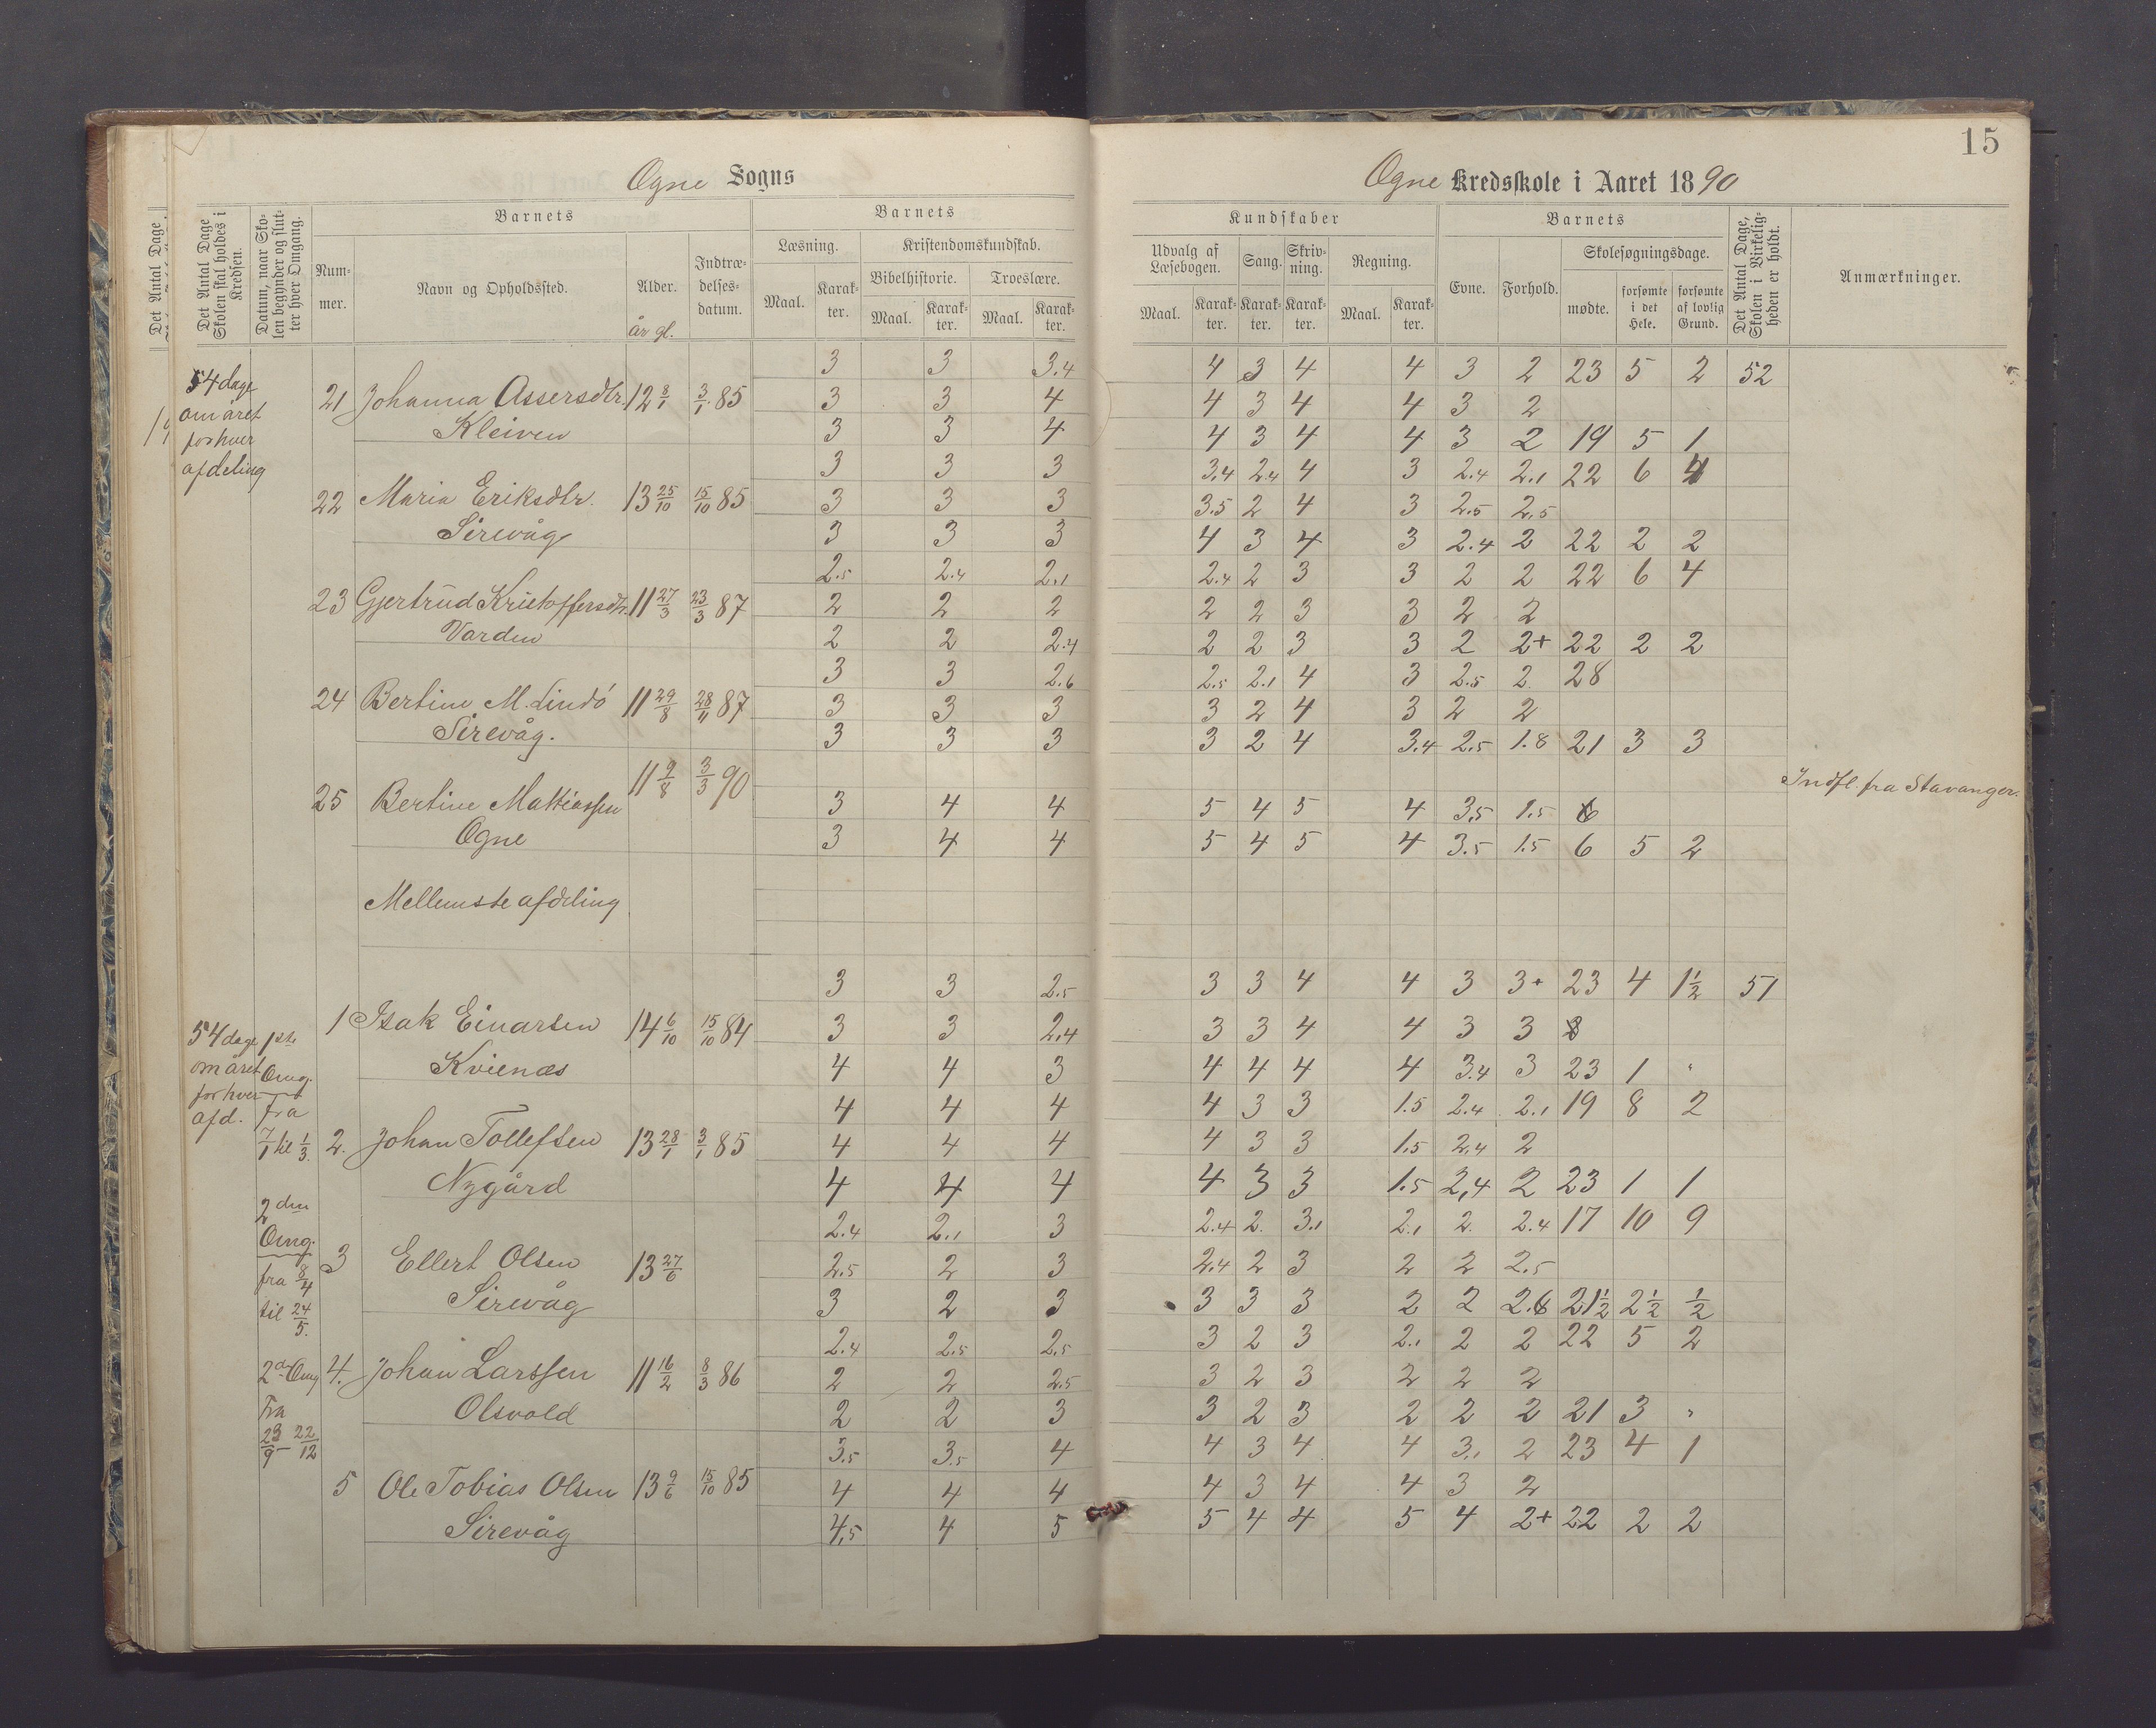 Ogne Sogns
Ogne Kredsskole i Aaret 1890
15
Det Antal Dage
Det Antal Dage Skolen skal holdes i Kredsen.
Datum, naar Skolen begynder og slutter hver Omgang.
Barnets
Num-
mer.
Navn og Opholdssted.
Alder.
år gl.
Indtræ-
delses-
datum.
Barnets
Læsning.
Kristendomskundskab.
Maal.
Karak-
ter.
Bibelhistorie.
Maal.
Karak-
ter.
Troeslære.
Maal.
Karak-
ter.
Kundskaber
Udvalg af
Læsebogen.
Maal.
Karak-
ter.
Sang.
Karak-
ter.
Skriv-
ning.
Karak-
ter.
Regning.
Maal.
Karak-
ter.
Barnets
Evne.
Forhold.
Skolesøgningsdage.
mødte.
forsømte
i det
Hele.
forsømte
af lovlig
Grund.
Det Antal Dage,
Skolen i Virkelig-
heden er holdt.
Anmærkninger.
3 3 3.4 4 3 4 4 3 2 23 5 2 52
54 dage
om året
for hver
afdeling
21 Johanna Assersdtr. 12 8/1 3/1 85 3 3 4 4 3 4 4 3 2
Kleiven 3 3 4 4 3 4 4 3 2 19 5 1
3 3 3 3.4 2.4 4 3 2.4 2.1 22 6 4
22 Maria Eriksdtr. 13 25/10 15/10 85 3 3 3 3.5 2 4 3 2.5 2.5
Sirevåg 3 3 3 4 3 4 3 2.4 2 22 2 2
2.5 2.4 2.1 2.4 2 3 3 2 2 22 6 4
23 Gjertrud Kristoffersdtr. 11 27/3 23/3 87 2 2 2 2 2 3 3 2 2
Varden 2 2 2.4 2 2 3 3 2 2+ 22 2 2
3 3 2.6 2.5 2.1 4 3 2.5 2. 28
24 Bertine M. Lindö 11 29/8 28/11 87 3 3 3 3 2 4 3 2 2
Sirevåg. 3 3 3 3 2 4 3.4 2.5 1.8 21 3 3
11 9/8 3/3 90
Indfl. fra Stavanger.
25 Bertine Mattiassen 3 4 4 5 4 5 4 3.5 1.5 6
Ogne 3 4 4 5 4 5 4 3.5 1.5 6 5 2
Mellemste afdeling
3 3 2.5 3 3 4 4 3 3+ 23 4 1½ 51
54 dage
om året
for hver
afd.
1ste
Omg.
fra
7/1 til 1/3.
1 Isak Einarsen 14 6/10 15/10 84 3 3 2.4 3 3 4 4 3 3
Kvienæs 4 4 3 4 4 4 4 3.4 3 23 1 "
4 4 4 4 3 3 1.5 2.4 2.1 19 8 2
2. Johan Tollefsen 13 28/1 3/1 85 4 4 4 4 3 3 1.5 2.4 2
Nygård 4 4 4 4 3 3 1.5 2,4 2 23 1 1
2den
Omg.
fra 8/4
til 24/5.
2.4 2.1 3 2.4 2. 3.1 2.1 2. 2.4 17 10 9
3 Ellert Olsen 13 27/6 2.5 2 3 2.4 2 3 2 2 2.5
Sirevåg 3 2 3 3 3 3 2 2 2.8 21½ 2½ ½
2.4 2.5 2.5 3 2 3 2.1 2 2 22 5 2
2d Omg
Fra
23/9 - 22/12
4. Johan Larssen 11 16/2 8/3 86 2 2 2.5 3 2 3 2 2 2
Olsvold 2 2 3 3 2 3 2 2 2 21 3 "
3.5 3.5 4 4 3 4 4 3.1 2 23 4 1
5 Ole Tobias Olsen 13 9/6 15/10 85 4 4 4 4 3 4 4 3 2
Sirevåg 4,5 4 5 5 4 4 5 4 2+ 22 2 2